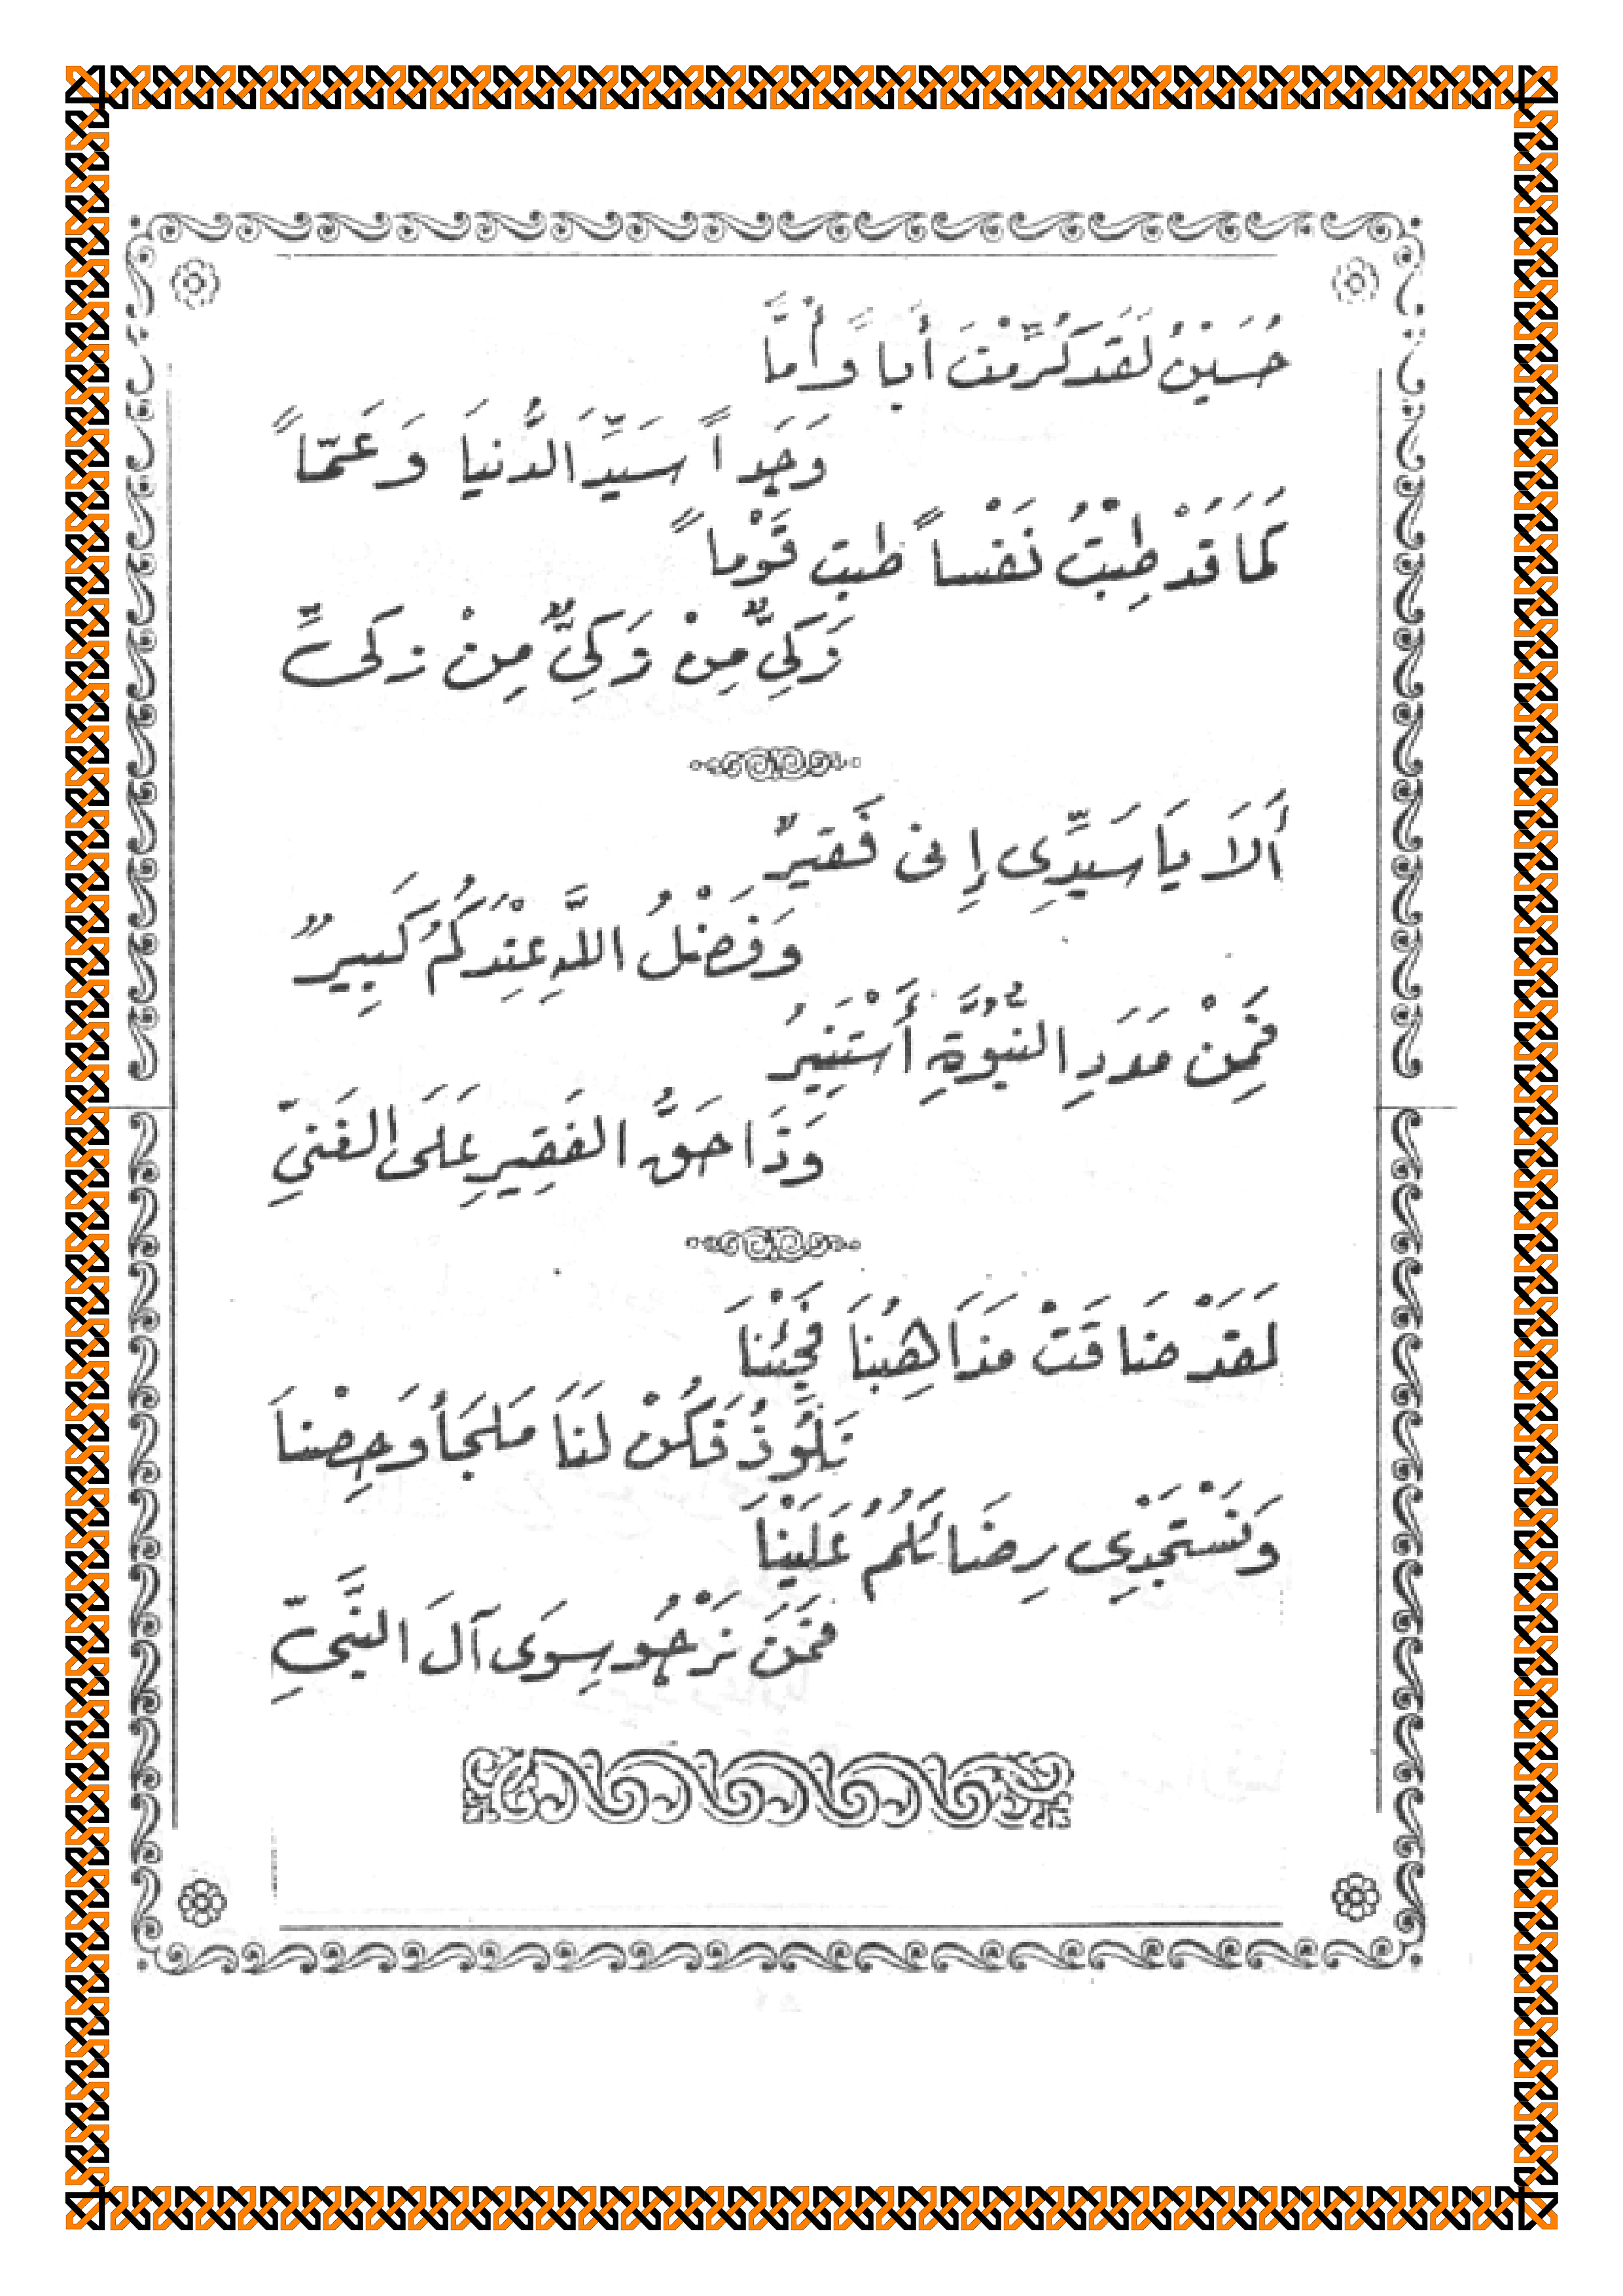 حُسَيْنُ لَقَدَ كُرِّمْتَ أَباً وَأُمَّاً
وَجَداً سَيِّدَ الدُّنيَا وَعَمّاً
كَمَا قَدْ طِبْتُ نَفْساً طبت قَوْماً
زَكِيٌّ مِنْ زَكِيٌّ مِنْ زكىٍّ
أَلَا يَا سَيِّدِى إِنى فَقيرٌ
وَفَضْلُ اللَّهِ عِنْدَكُمُ كَبِيرٌ
فَمِنْ مَدَدِ النُّبُوَّةِ أَسْتَنِيرُ
وَذَا حَقُّ الفَقِيرِ عَلَى الغَنىِّ
لَقَدْ ضَاقَتْ مَذَاهِبُنَا فَجِئْنَا
نَلُوذُ فَكُنْ لَنَا مَلجَأ وَحِصْناَ
وَنَسْتَجْدِى رِضَائَكُمُ عَلَيْنَا
فَمَن نَرْجُو سِوَى آلَ النَّبىِّ